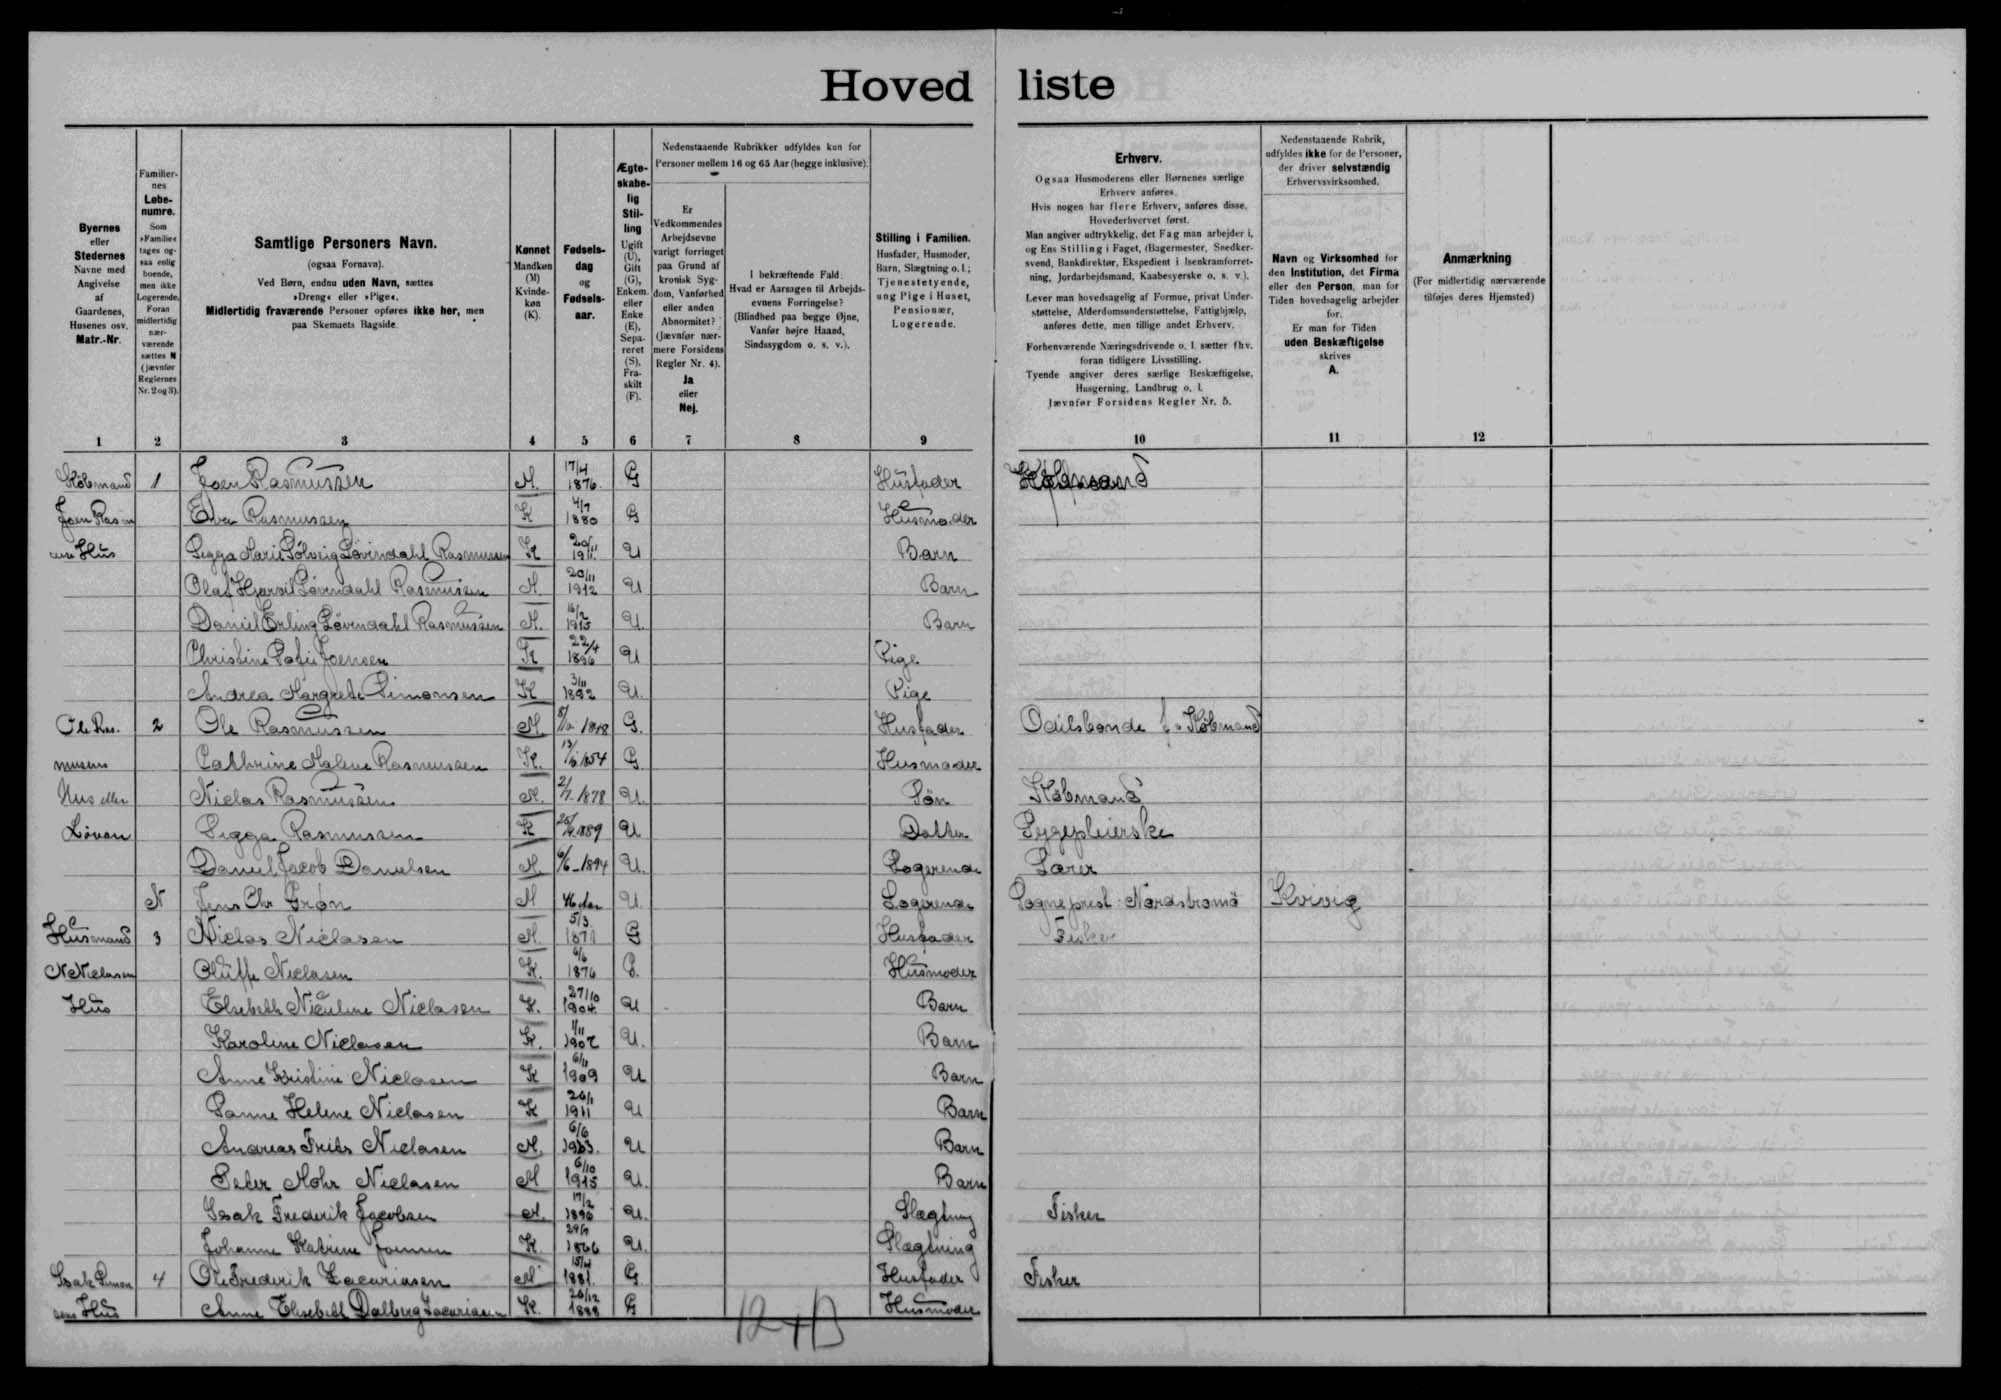 Hoved liste
Byernes eller Stedernes Navne med Angivelse af Gaardenes, Husenes osv. Matr.-Nr.
Familier-nes Løbe-numre. Som »Familie« tages og-saa enlig boende, men ikke Logerende. Foran midlertidig nær-værende sættes N (jævnfør Reglernes Nr. 2 og 3).
Samtlige Personers Navn. (ogsaa Fornavn). Ved Børn, endnu uden Navn, sættes »Dreng« eller »Pige«. Midlertidig fraværende Personer opføres ikke her, men paa Skemaets Bagside.
Kønnet Mandkøn (M) Kvinde-køn (K).
Fødsels-dag og Fødsels-aar.
Ægte-skabe-lig Stil-ling Ugift (U), Gift (G), Enkem. eller Enke (E), Sepa-reret (S), Fra-skilt (F).
Nedenstaaende Rubrikker udfyldes kun for Personer mellem 16 og 65 Aar (begge inklusive).
Er Vedkommendes Arbejdsevne varigt forringet paa Grund af kronisk Syg-dom, Vanførhed eller anden Abnormitet? (Jævnfør nær-mere Forsidens Regler Nr. 4). Ja eller Nej.
I bekræftende Fald: Hvad er Aarsagen til Arbejds-evnens Forringelse? (Blindhed paa begge Øjne, Vanfør højre Haand, Sindssygdom o. s. v.).
Stilling i Familien. Husfader, Husmoder, Barn, Slægtning o. l.; Tjenestetyende, ung Pige i Huset, Pensionær, Logerende.
Erhverv. Ogsaa Husmoderens eller Børnenes særlige Erhverv anføres. Hvis nogen har flere Erhverv, anføres disse, Hovederhvervet først. Man angiver udtrykkelig, det Fag man arbejder i, og Ens Stilling i Faget, (Bagermester, Snedker-svend, Bankdirektør, Ekspedient i Isenkramforret-ning, Jordarbejdsmand, Kaabesyerske o. s. v.). Lever man hovedsagelig af Formue, privat Under-støttelse, Alderdomsunderstøttelse, Fattighjælp, anføres dette, men tillige andet Erhverv. Forhenværende Næringsdrivende o. l. sætter fhv. foran tidligere Livsstilling. Tyende angiver deres særlige Beskæftigelse, Husgerning, Landbrug o. l. Jævnfør Forsidens Regler Nr. 5.
Nedenstaaende Rubrik, udfyldes ikke for de Personer, der driver selvstændig Erhvervsvirksomhed.
Navn og Virksomhed for den Institution, det Firma eller den Person, man for Tiden hovedsagelig arbejder for. Er man for Tiden uden Beskæftigelse skrives A.
Anmærkning (For midlertidig nærværende tilføjes deres Hjemsted)
1 2 3 4 5 6 7 8 9 10 11 12
Købmand 1 Joen Rasmussen M. 17/4 1876. G Husfader Købmand
Joen Rasm Elva Rasmussen K 4/7 1880 G Husmoder
Hus Sigga Marie Sólveig Løvindahl Rasmussen K 20/11 1911. U Barn
Olaf Løvindahl Rasmussen M 20/11 1912 U Barn
Daniel Erling Løvindahl Rasmussen M. 16/2 1915 U. Barn
Christine Sofie Joensen K 22/4 1896 U Pige
Andrea Margrete Simonsen K 3/11 1892 U. Pige
Ole Ras- 2 Ole Rasmussen M. 1848 G. Husfader Odelsbonde Købmand
mussens Cathrine Malene Rasmussen K. 1854 G Husmoder
Hus eller Niclas Rasmussen M. 2/7 1878 U. Søn Købmand
Løvon Sigga Rasmussen K 1889 U Datter Sygepleierske
Daniel Jacob Danielsen M. 6/6-1894 U. Logerende Lærer
N Jens Chr Grøn M 46 Aar U. Logerende Sogneprest Nordstromø Kvivig
Husmand 3 Niclas Niclasen M. 5/3 1871 G Husfader Fisker
N Niclasen Oluffe Niclasen K. 6/6 1876 G. Husmoder
Hus Elsebeth Niculine Niclasen K. 27/10 1904. U Barn
Karoline Niclasen K. 1/11 1907 U. Barn
Anne Kristine Niclasen K 6/11 1909 U Barn
Sanne Helene Niclasen K 26/1 1911 U Barn
Andreas Frits Niclasen M. 6/6 1913. U Barn
Peter Mohr Niclasen M 6/10 1915 U. Barn
Isak Frederik Jacobsen M. 17/2 1896 U. Slægtning Fisker
Johanne Katrine Joensen K 29/9 1866 U. Slægtning
Isak Simon 4 Ole Frederik Zacariasen M 15/4 1881. G Husfader Fisker
sens Hus Anne Elsebeth Dalberg Zacariasen K. 26/12 1888 G Husmoder
12+13